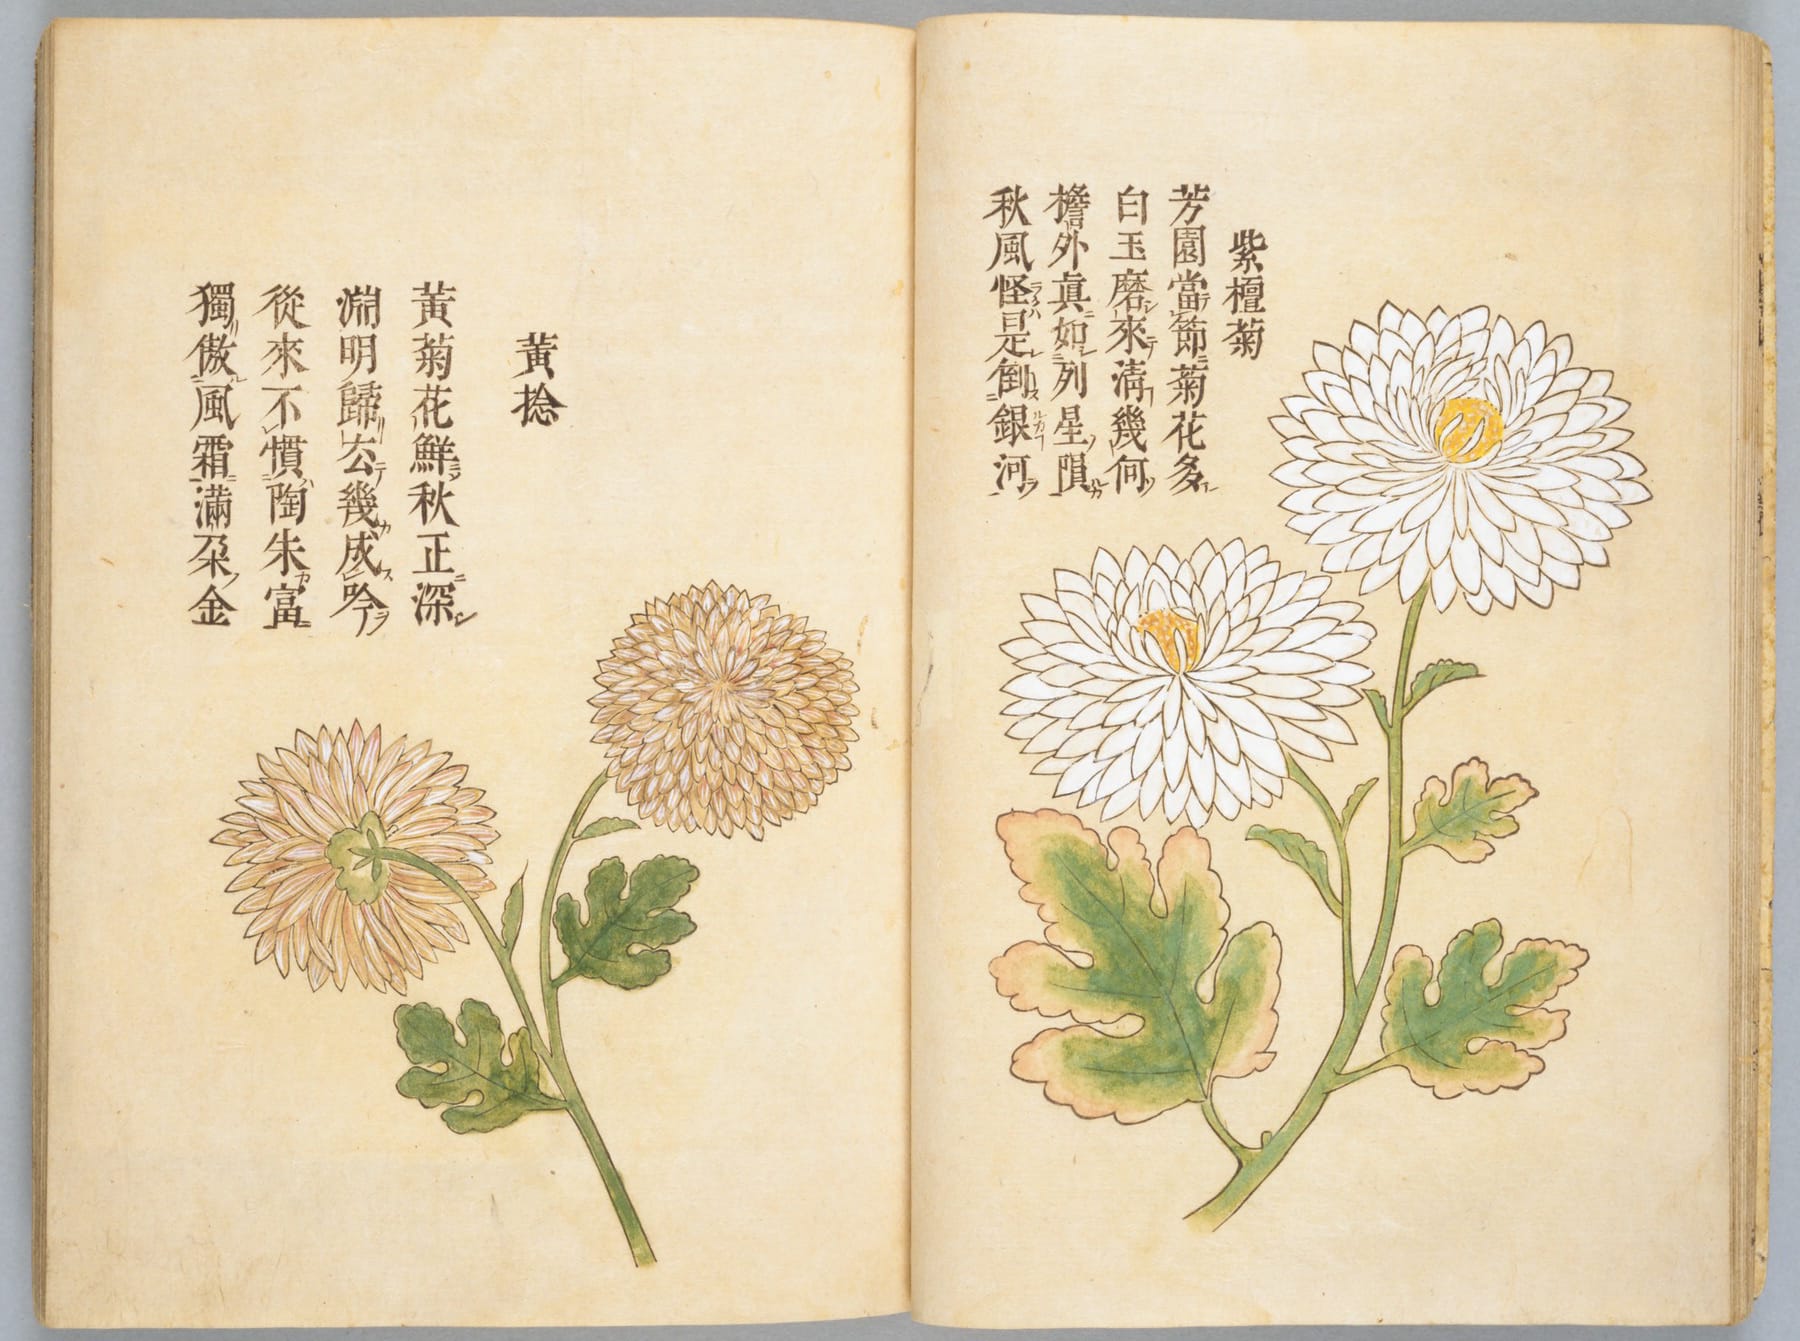 紫檀菊
芳園當節菊花多
白玉磨來淸幾何
檐外眞如列星隕
秋風怪是倒銀河
黃捻
黃菊花鮮秋正深
淵明歸去幾成吟
從來不慣陶朱富
獨傲風霜滿朶金